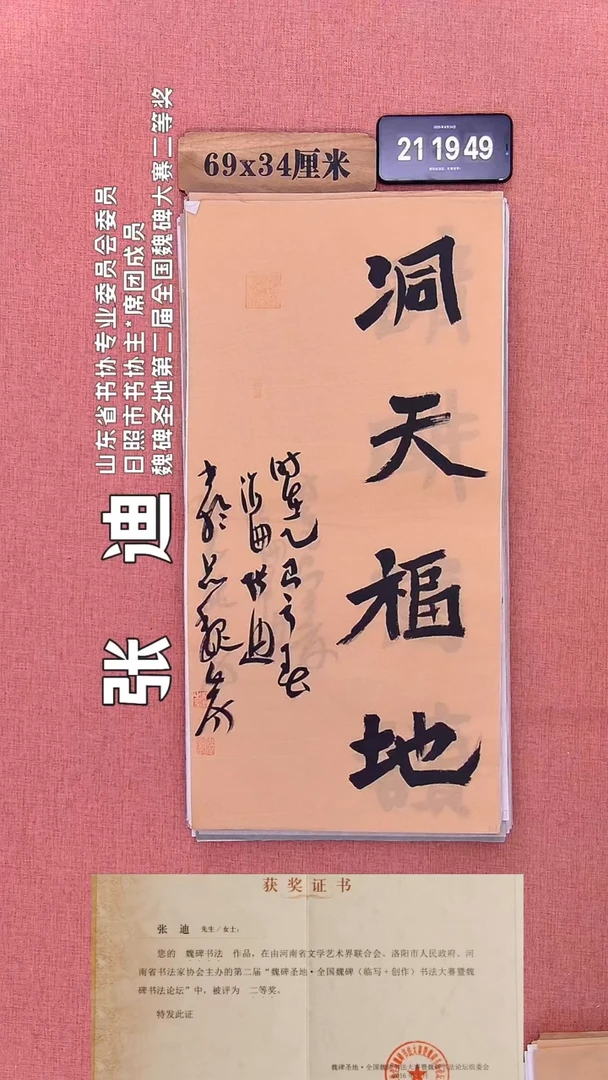 山东省书协专业委员会委员
日照市书协主*席团成员
魏碑圣地第二届全国魏碑大赛二等奖
张 迪
69x34厘米
21 19 49
洞天福地
时在乙巳之春
海曲张迪
获奖证书
张 迪 先生/女士:
您的 魏碑书法 作品,在由河南省文学艺术界联合会、洛阳市人民政府、河
南省书法家协会主办的第二届“魏碑圣地·全国魏碑(临写+创作)书法大赛暨魏
碑书法论坛”中,被评为 二等奖。
特发此证
魏碑圣地·全国魏碑书法大赛暨魏碑书法论坛组委会